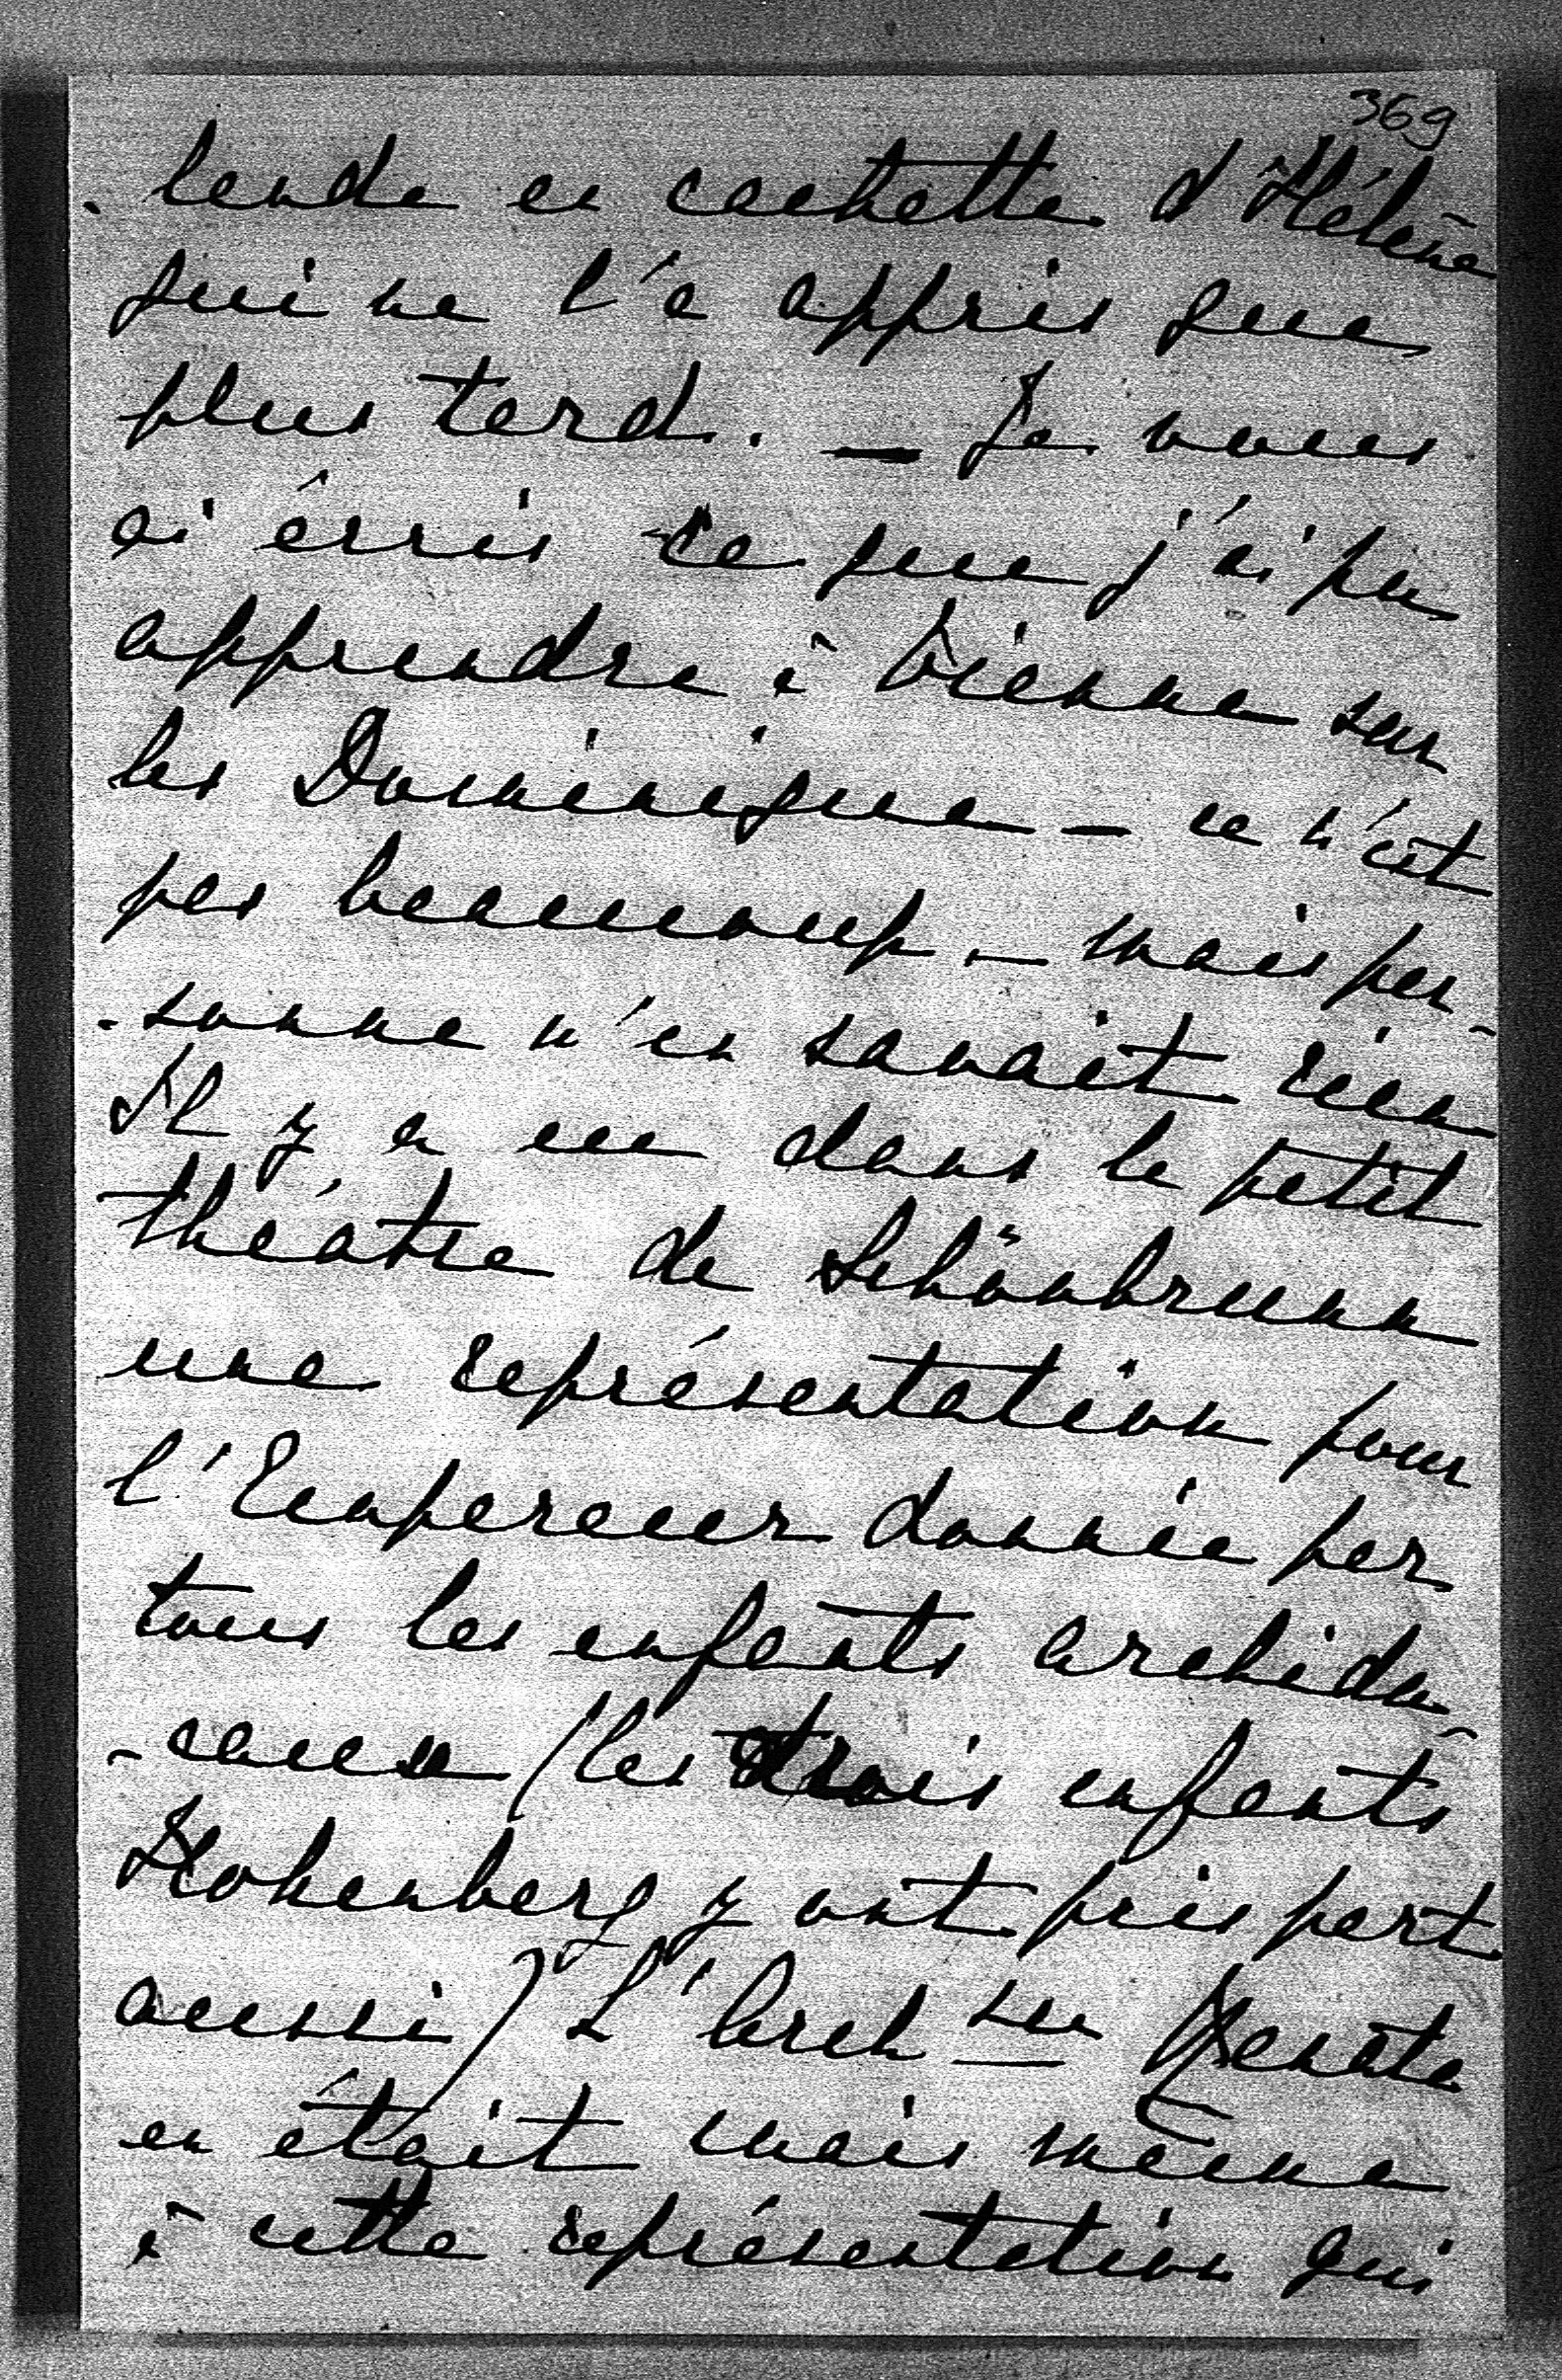 369
- lende en cachette d'Hélène
qui ne l'a appris que
plus tard. — Je vous
ai écris ce que j'ai pu
apprendre à Vienne sur
les Dominique — ce n'est
pas beaucoup — mais per-
- sonne n'en savait rien
Il y a eu dans le petit
théâtre de Schönbrunn
une représentation pour
l'Empereur donnée par
tous les enfants archidu-
- caux (les trois enfants
Hohenberg y ont pris part
aussi) L'Arch sse Renata
en était mais même
à cette représentation qui